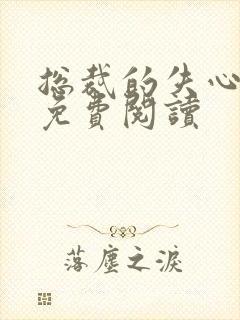 总裁的失心
免費閱讀
落塵之淚